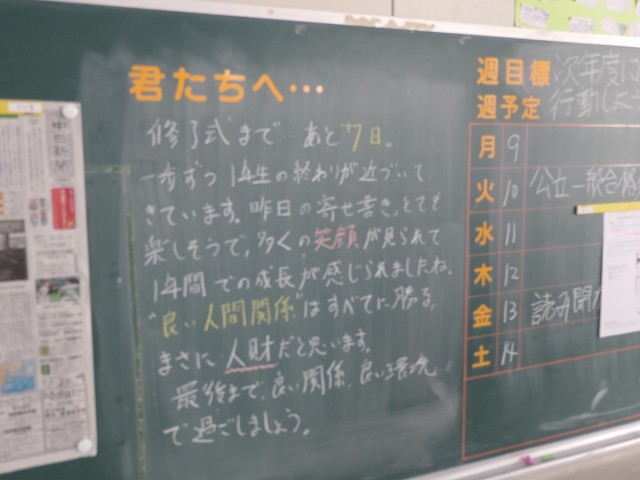 君たちへ…
修了式まで あと7日。
一歩ずつ 1年生の終わりが近づいて
きています。昨日の寄せ書き、とても
楽しそうで、多くの笑顔が見られて
1年間での成長が感じられましたね。
"良い人間関係"はすべてに勝る。
まさに 人財だと思います。
最後まで、良い関係、良い環境
で過ごしましょう。
週目標 次年度に
週予定 行動した
月 9
火 10 公立一般合格
水 11
木 12
金 13 読み聞か
土 14
中日新聞